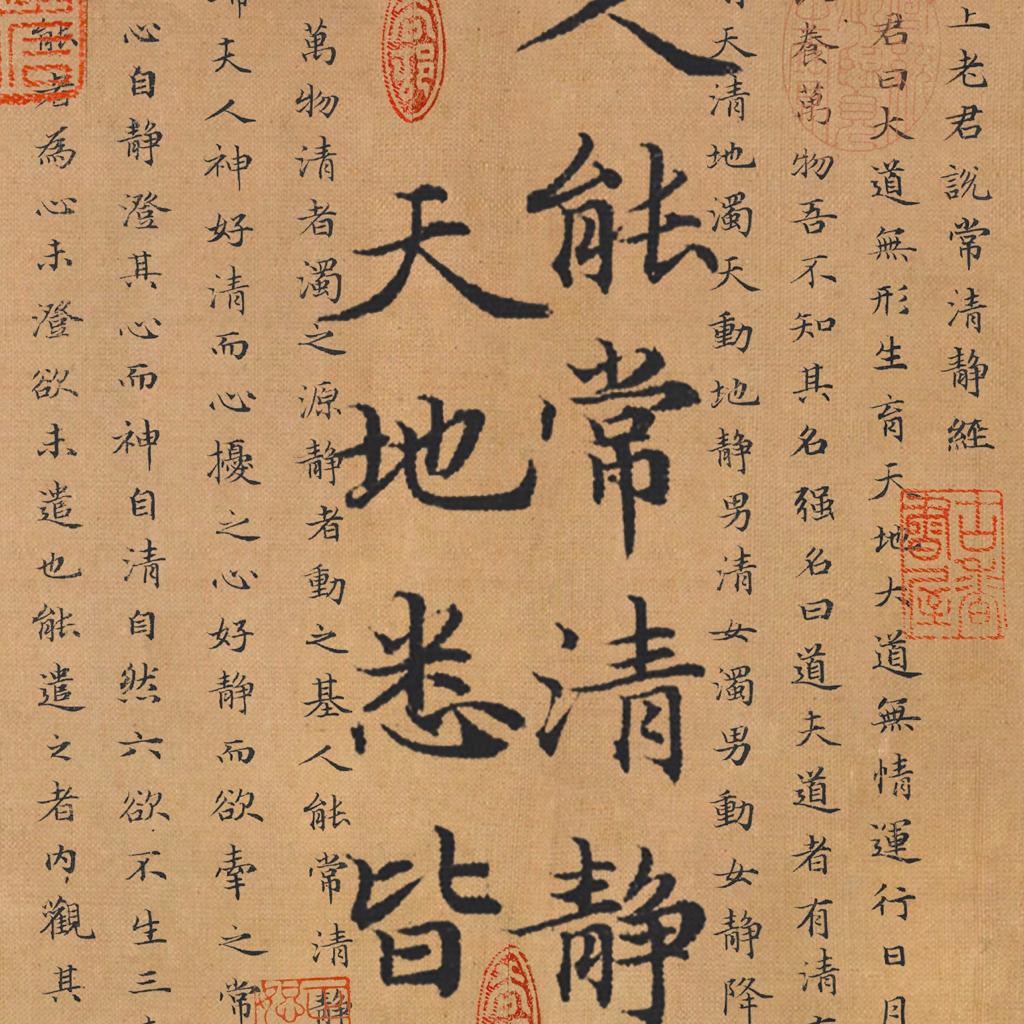 上老君說常清静經
君曰大道無形生育天地大道無情運行日月
養萬物吾不知其名强名曰道夫道者有清
天清地濁天動地静男清女濁男動女静降
人能常清静
天地悉皆
萬物清者濁之源静者動之基人能常清静
夫人神好清而心擾之心好静而欲牽之常
心自静澄其心而神自清自然六欲不生三
能者為心未澄欲未遣也能遣之者内觀其